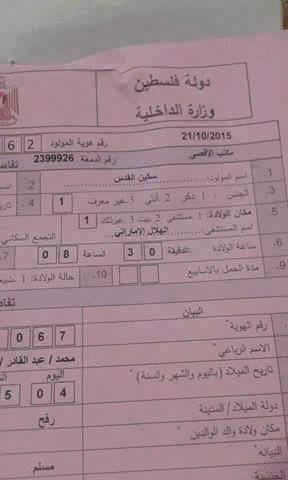 دولة فلسطين
وزارة الداخلية
21/10/2015
رقم هوية المولود
6 2
مكتب الأقصى
رقم الدمغة 2399926
تفاصيل
1. اسم المولود: سكين القدس
2. اسم
3. الجنس: 1 ذكر 2. أنثى 3. غير معرف 1
4. تاريخ
5. مكان الولادة: 1 مستشفى 2 بيت 3. غير ذلك 1
اسم المستشفى: الهلال الإماراتي
التجمع السكاني
6. ساعة الولادة: الدقيقة 3 0 الساعة 0 8
7.
9. مدة الحمل بالاسابيع
10. حالة الولادة: 1. طبيعية
البيان
رقم الهوية
0 6 7
الاسم الرباعي
محمد / عبد القادر /
تاريخ الميلاد (باليوم والشهر والسنة)
اليوم
0 4
5
دولة الميلاد / المدينة
رفح
مكان ولادة والد الوالدين
الديانة
مسلم
الجنسية